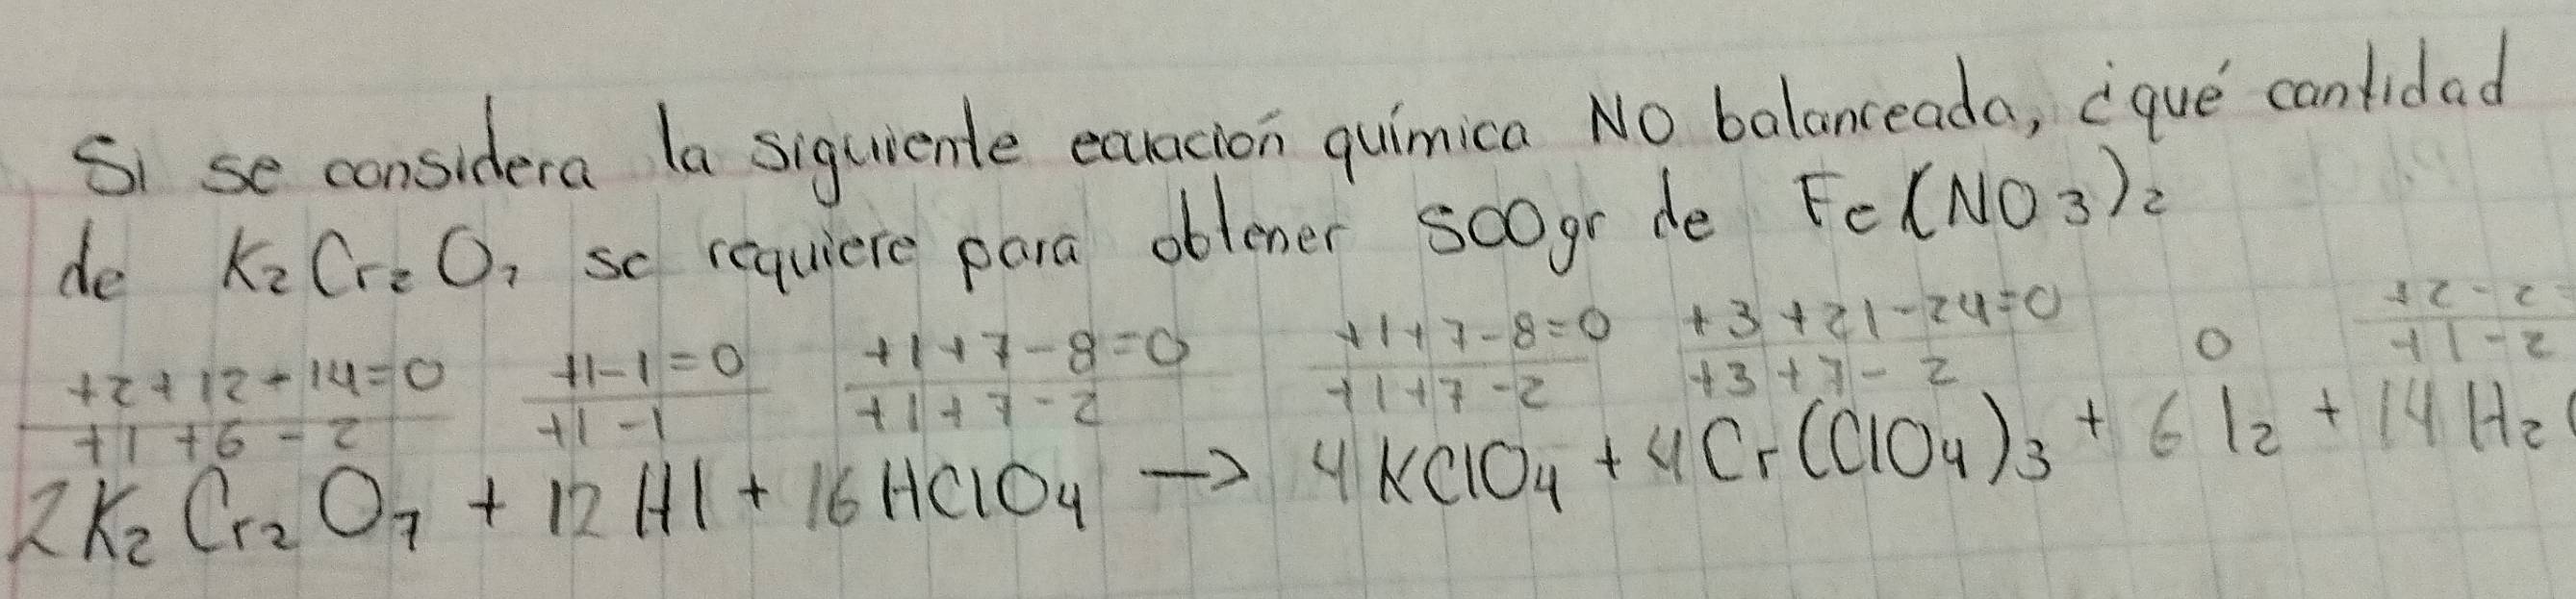 Si se considera la siguiente ecuación química NO balanceada, ¿qué cantidad
de K₂Cr₂O₇ se requiere para obtener 500gr de Fe(NO3)₂
+2+12-14=0 +1-1=0 +1+7-8=0 +1+7-8=0 +3+21-24=0 0 +2-2=
+1+6-2 +1-1 +1+7-2 +1+7-2 +3+7-2 +1-2
2K₂Cr₂O₇ + 12HI + 16HClO₄ → 4KClO₄ + 4Cr(ClO₄)₃ + 6I₂ + 14H₂